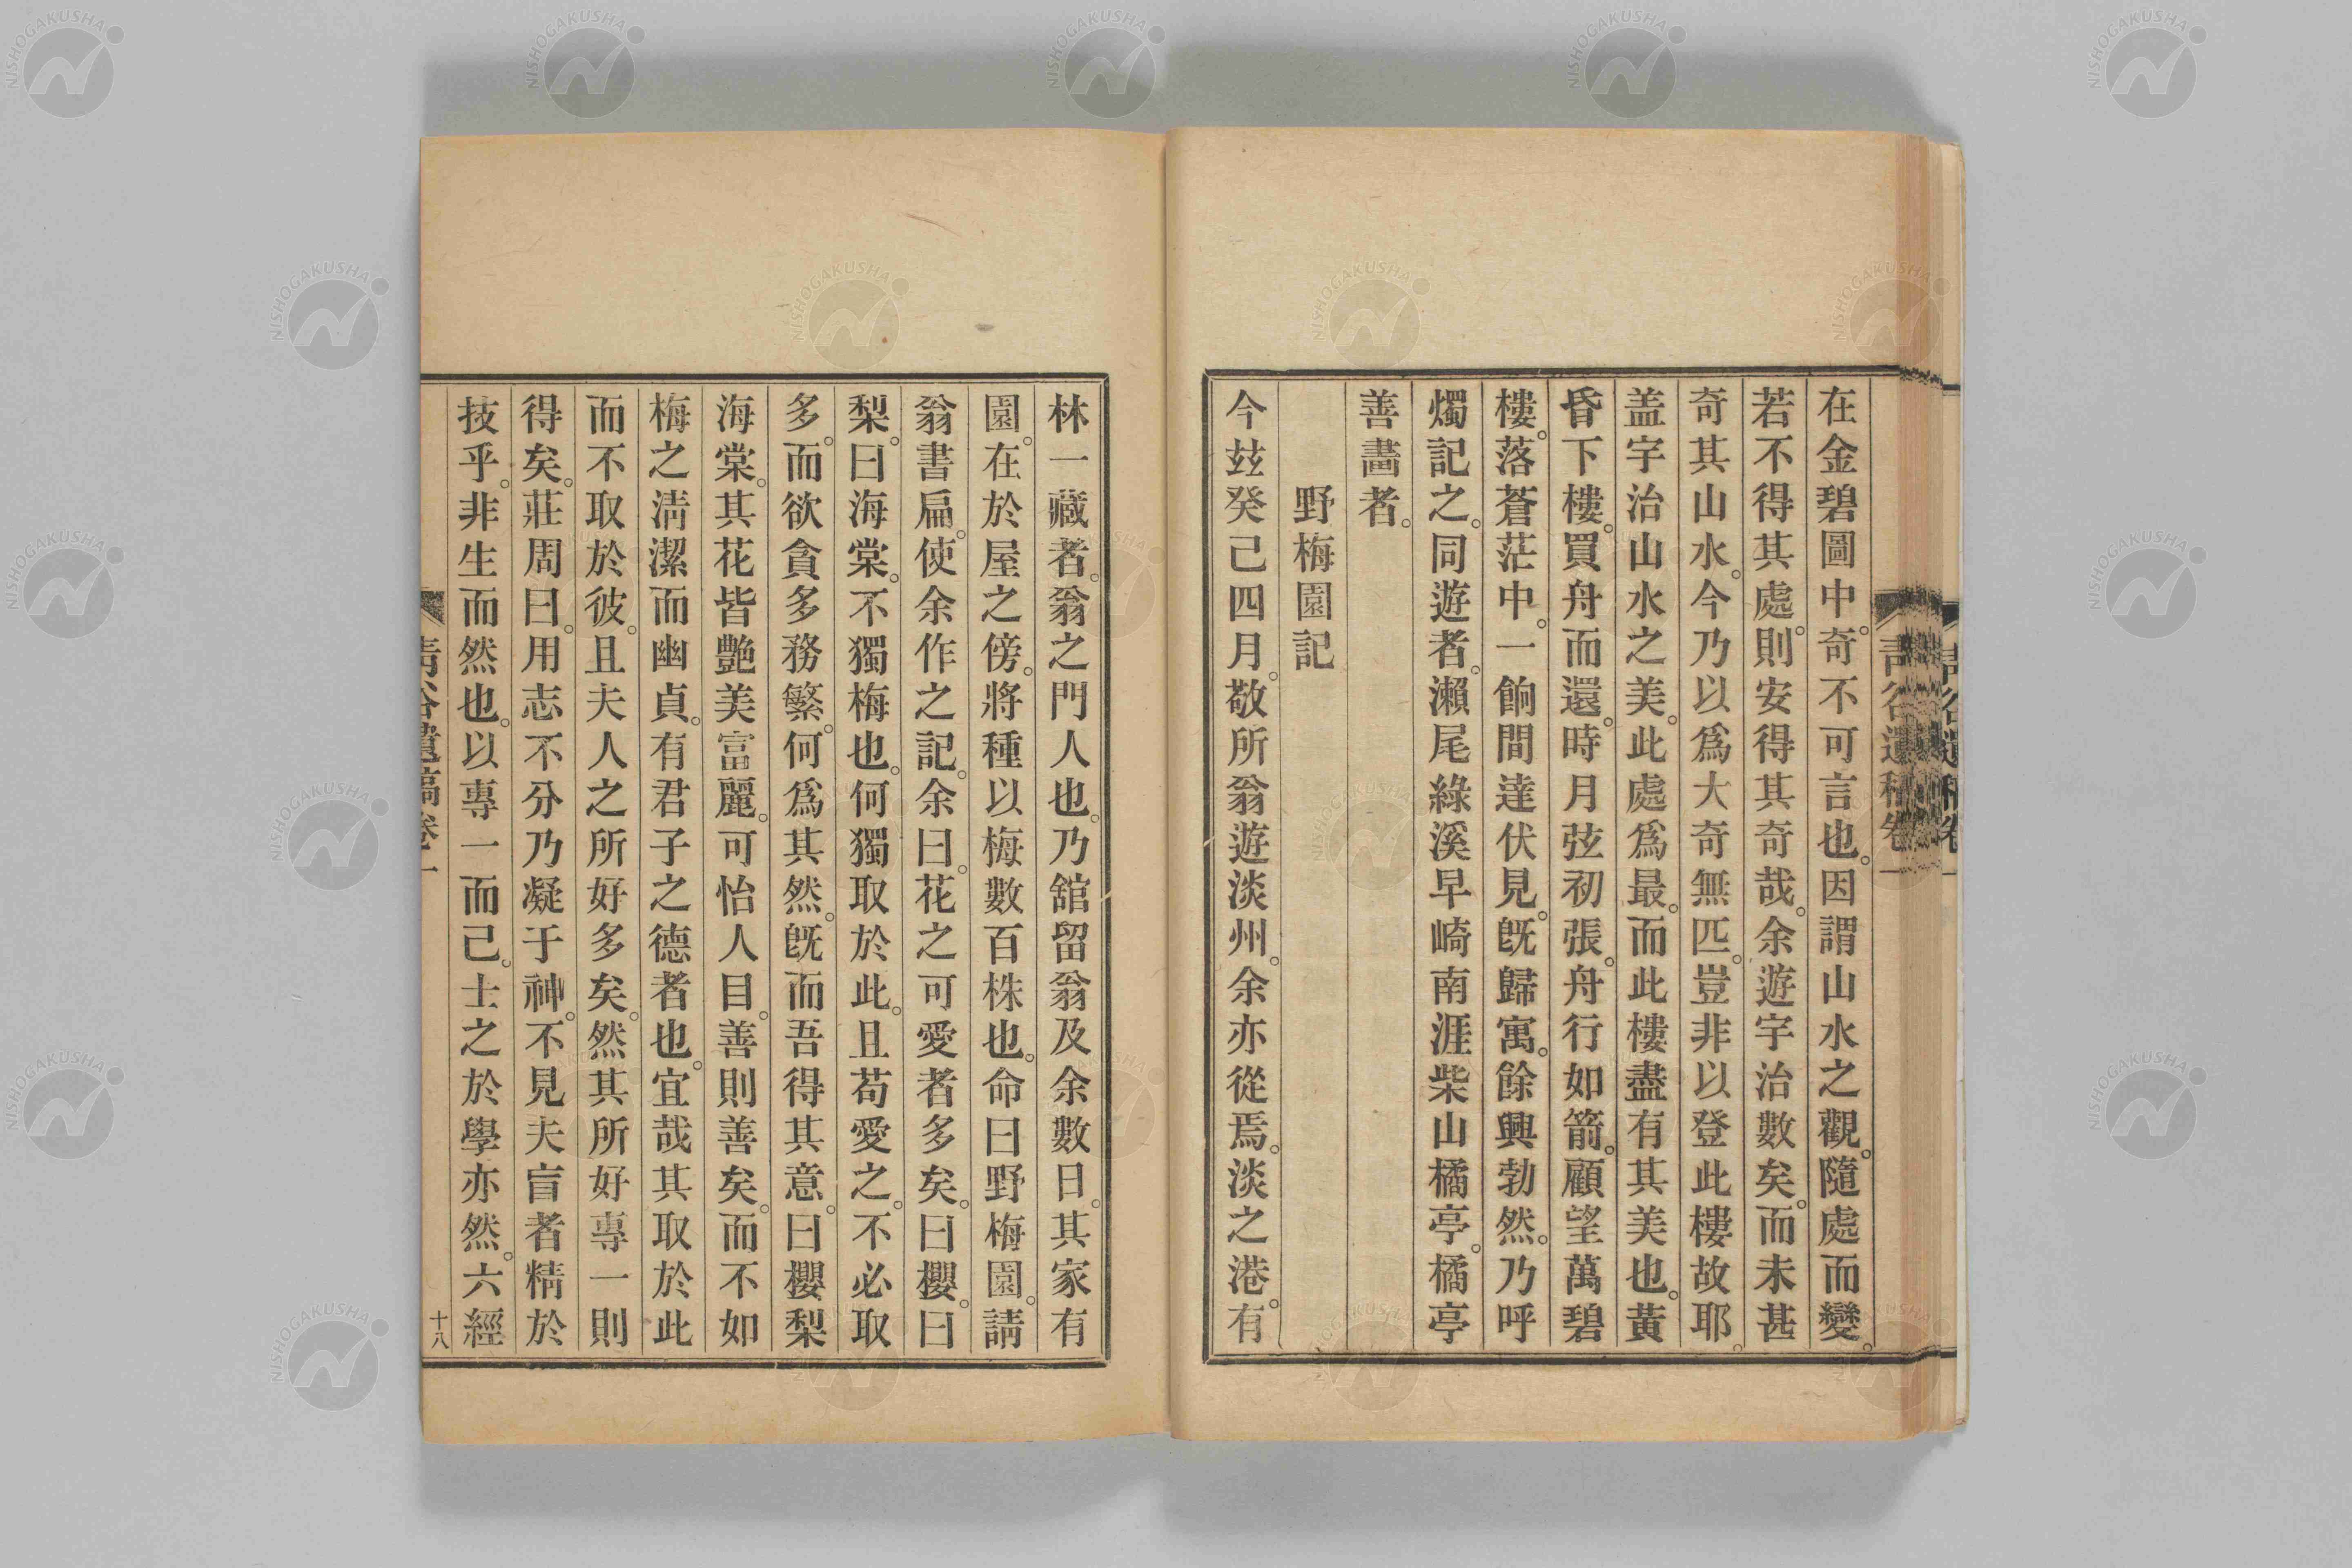 在金碧圖中。奇不可言也。因謂山水之觀。隨處而變。
若不得其處。則安得其奇哉。余遊宇治數矣。而未甚
奇其山水。今乃以爲大奇無匹。豈非以登此樓故耶。
盖宇治山水之美。此處爲最。而此樓盡有其美也。黃
昏下樓。買舟而還。時月弦初張。舟行如箭。顧望萬碧
樓。落蒼茫中。一餉間達伏見。既歸寓。餘興勃然。乃呼
燭記之。同遊者。瀨尾綠溪早崎南涯柴山橘亭。橘亭
善畵者。
野梅園記
今玆癸己四月。敬所翁遊淡州。余亦從焉。淡之港。有
林一藏者。翁之門人也。乃舘留翁及余數日。其家有
園。在於屋之傍。將種以梅數百株也。命曰野梅園。請
翁書扁。使余作之記。余曰。花之可愛者多矣。曰櫻。曰
梨。曰海棠。不獨梅也。何獨取於此。且苟愛之。不必取
多。而欲貪多務繁。何爲其然。既而吾得其意。曰櫻梨
海棠。其花皆艶美富麗。可怡人目。善則善矣。而不如
梅之淸潔而幽貞。有君子之德者也。宜哉其取於此
而不取於彼。且夫人之所好多矣。然其所好專一則
得矣。莊周曰。用志不分乃凝于神。不見夫盲者精於
技乎。非生而然也。以專一而己。士之於學亦然。六經
十八
NISHOGAKUSHA